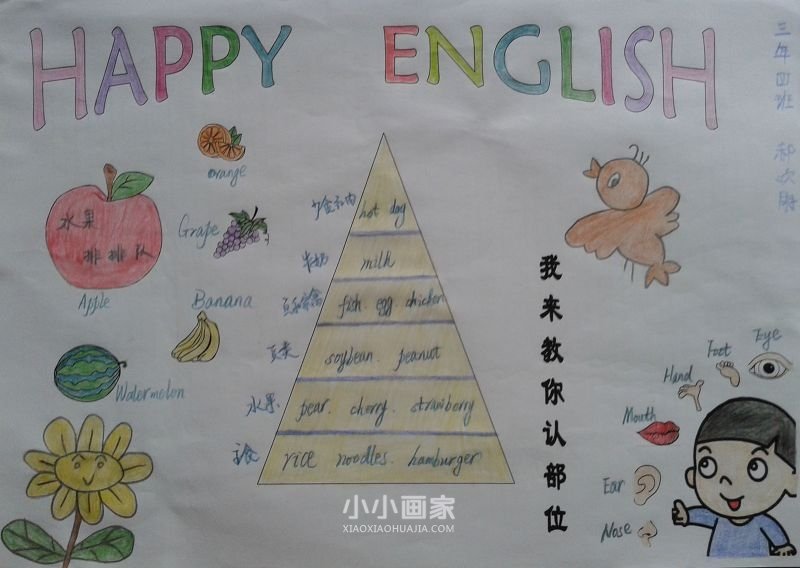 HAPPY ENGLISH
三年四班
orange
水果
排排队
Apple
Grape
Banana
Watermelon
hot dog
牛奶 milk
fish. egg. chicken
豆类 soybean. peanut
水果 pear. cherry. strawberry
主食 rice noodles. hamburger
我来教你认部位
Eye
Foot
Hand
Mouth
Ear
Nose
小小画家
XIAOXIAOHUAJIA.COM